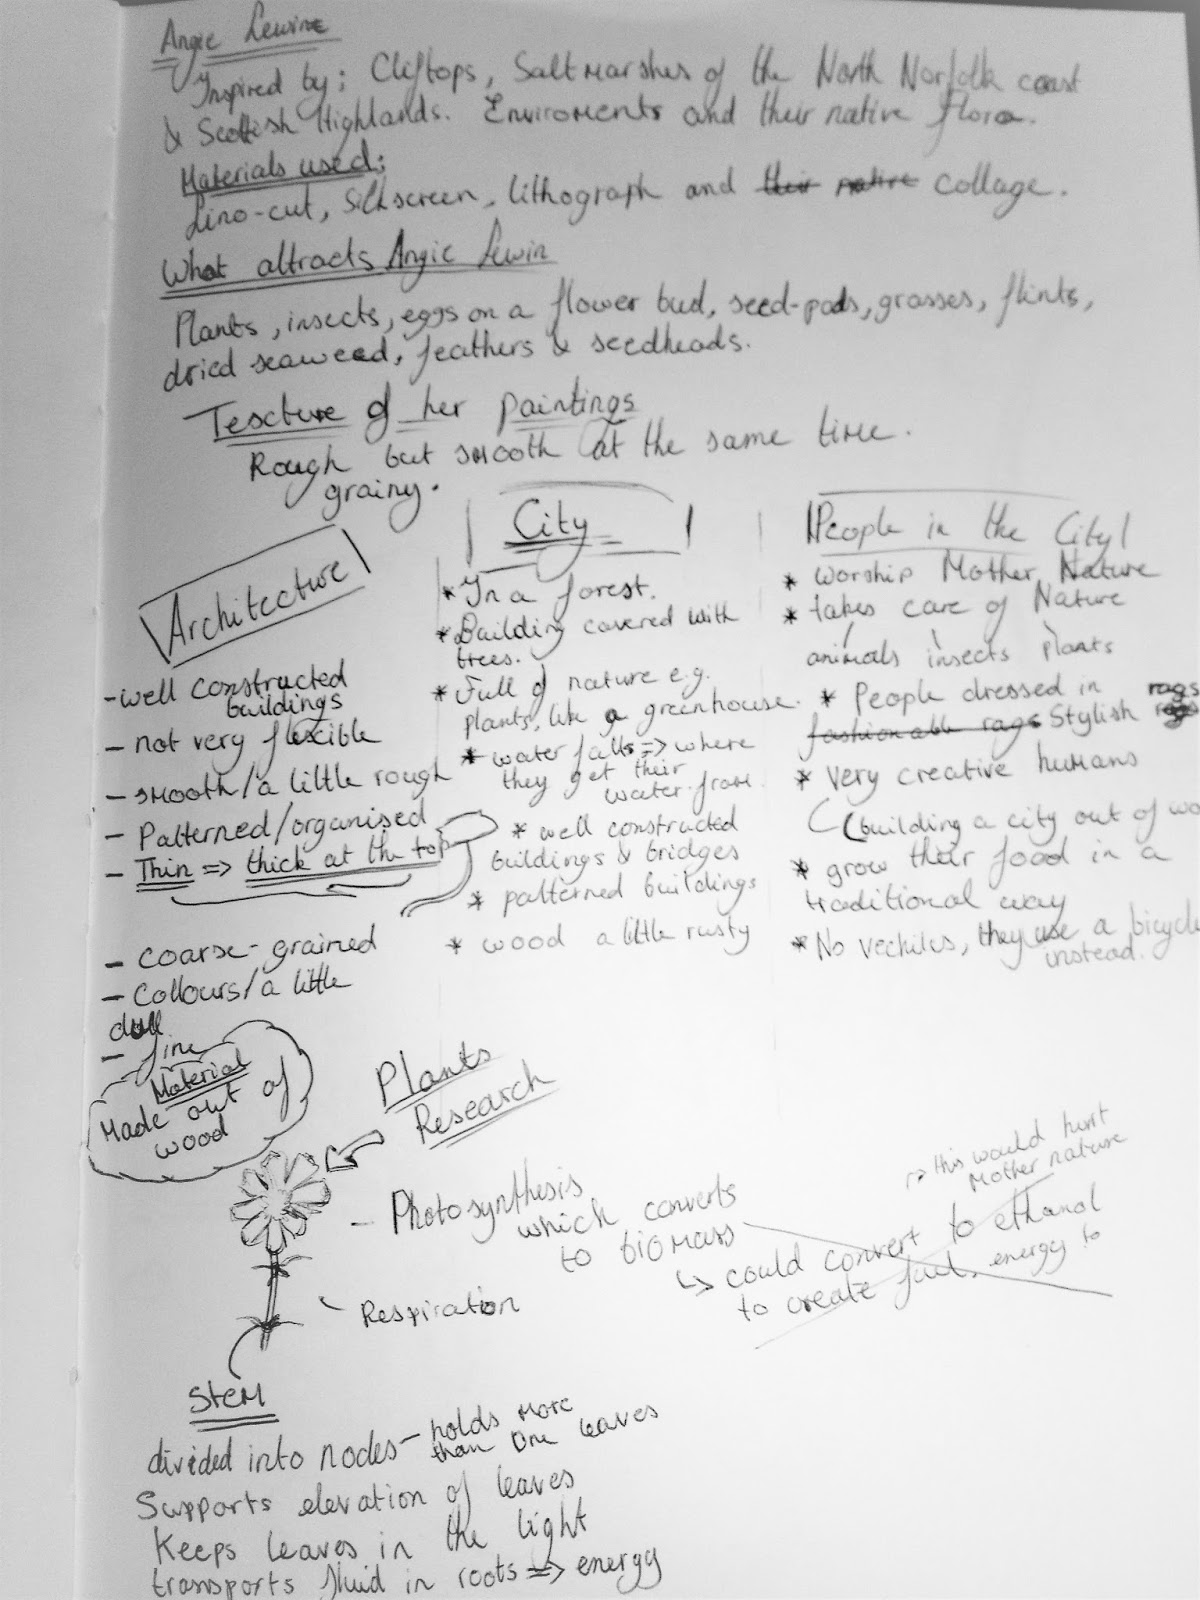 Angie Lewin
Inspired by: Cliftops, Saltmarshes of the North Norfolk coast
& Scottish Highlands. Enviroments and their native flora.
Materials used:
Lino-cut, Silkscreen, lithograph and their native collage.
What attracts Angie Lewin
Plants, insects, eggs on a flower bud, seed-pods, grasses, flints,
dried seaweed, feathers & seedheads.
Texture of her paintings
Rough but smooth at the same time.
grainy.
Architecture
-well constructed
buildings
- not very flexible
- smooth/a little rough
- Patterned/organised
- Thin => thick at the top
- coarse-grained
- Collours/a little
dull
- fine
Material
Made out of
wood
City
* In a forest.
* Building covered with
trees.
* Full of nature e.g.
plants, like a greenhouse.
* water falls => where
they get their
water from.
* well constructed
buildings & bridges
* patterned buildings
* wood a little rusty
People in the City
* worship Mother Nature
* takes care of Nature
animals insects plants
* People dressed in rags
fashionable rags Stylish rags
* Very creative humans
(building a city out of wo
* grow their food in a
traditional way
* No vechiles, they use a bicycle
instead.
Plants
Research
- Photosynthesis
which converts
to biomass
-> this would hurt
Mother nature
-> could convert to ethanol
to create fuel, energy to
- Respiration
Stem
divided into nodes - holds more
than one leaves
Supports elevation of leaves
Keeps leaves in the light
transports fluid in roots => energy